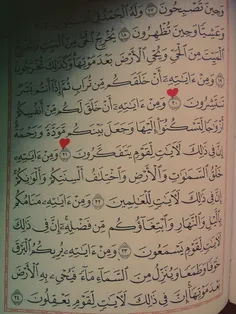 وَحِينَ تُصْبِحُونَ ١٧ وَلَهُ الْحَمْدُ فِي
وَعَشِيًّا وَحِينَ تُظْهِرُونَ ١٨ يُخْرِجُ الْحَيَّ مِنَ
الْمَيِّتَ مِنَ الْحَيِّ وَيُحْيِي الْأَرْضَ بَعْدَ مَوْتِهَا وَكَذَٰلِكَ تُخْرَجُونَ
١٩ وَمِنْ آيَاتِهِ أَنْ خَلَقَكُم مِّن تُرَابٍ ثُمَّ إِذَا أَنتُم بَشَرٌ
تَنتَشِرُونَ ٢٠ وَمِنْ آيَاتِهِ أَنْ خَلَقَ لَكُم مِّنْ أَنفُسِكُمْ
أَزْوَاجًا لِّتَسْكُنُوا إِلَيْهَا وَجَعَلَ بَيْنَكُم مَّوَدَّةً وَرَحْمَةً
إِنَّ فِي ذَٰلِكَ لَآيَاتٍ لِّقَوْمٍ يَتَفَكَّرُونَ ٢١ وَمِنْ آيَاتِهِ
خَلْقُ السَّمَاوَاتِ وَالْأَرْضِ وَاخْتِلَافُ أَلْسِنَتِكُمْ وَأَلْوَانِكُمْ
إِنَّ فِي ذَٰلِكَ لَآيَاتٍ لِّلْعَالِمِينَ ٢٢ وَمِنْ آيَاتِهِ مَنَامُكُم
بِاللَّيْلِ وَالنَّهَارِ وَابْتِغَاؤُكُم مِّن فَضْلِهِ إِنَّ فِي ذَٰلِكَ
لَآيَاتٍ لِّقَوْمٍ يَسْمَعُونَ ٢٣ وَمِنْ آيَاتِهِ يُرِيكُمُ الْبَرْقَ
خَوْفًا وَطَمَعًا وَيُنَزِّلُ مِنَ السَّمَاءِ مَاءً فَيُحْيِي بِهِ الْأَرْضَ
بَعْدَ مَوْتِهَا إِنَّ فِي ذَٰلِكَ لَآيَاتٍ لِّقَوْمٍ يَعْقِلُونَ ٢٤